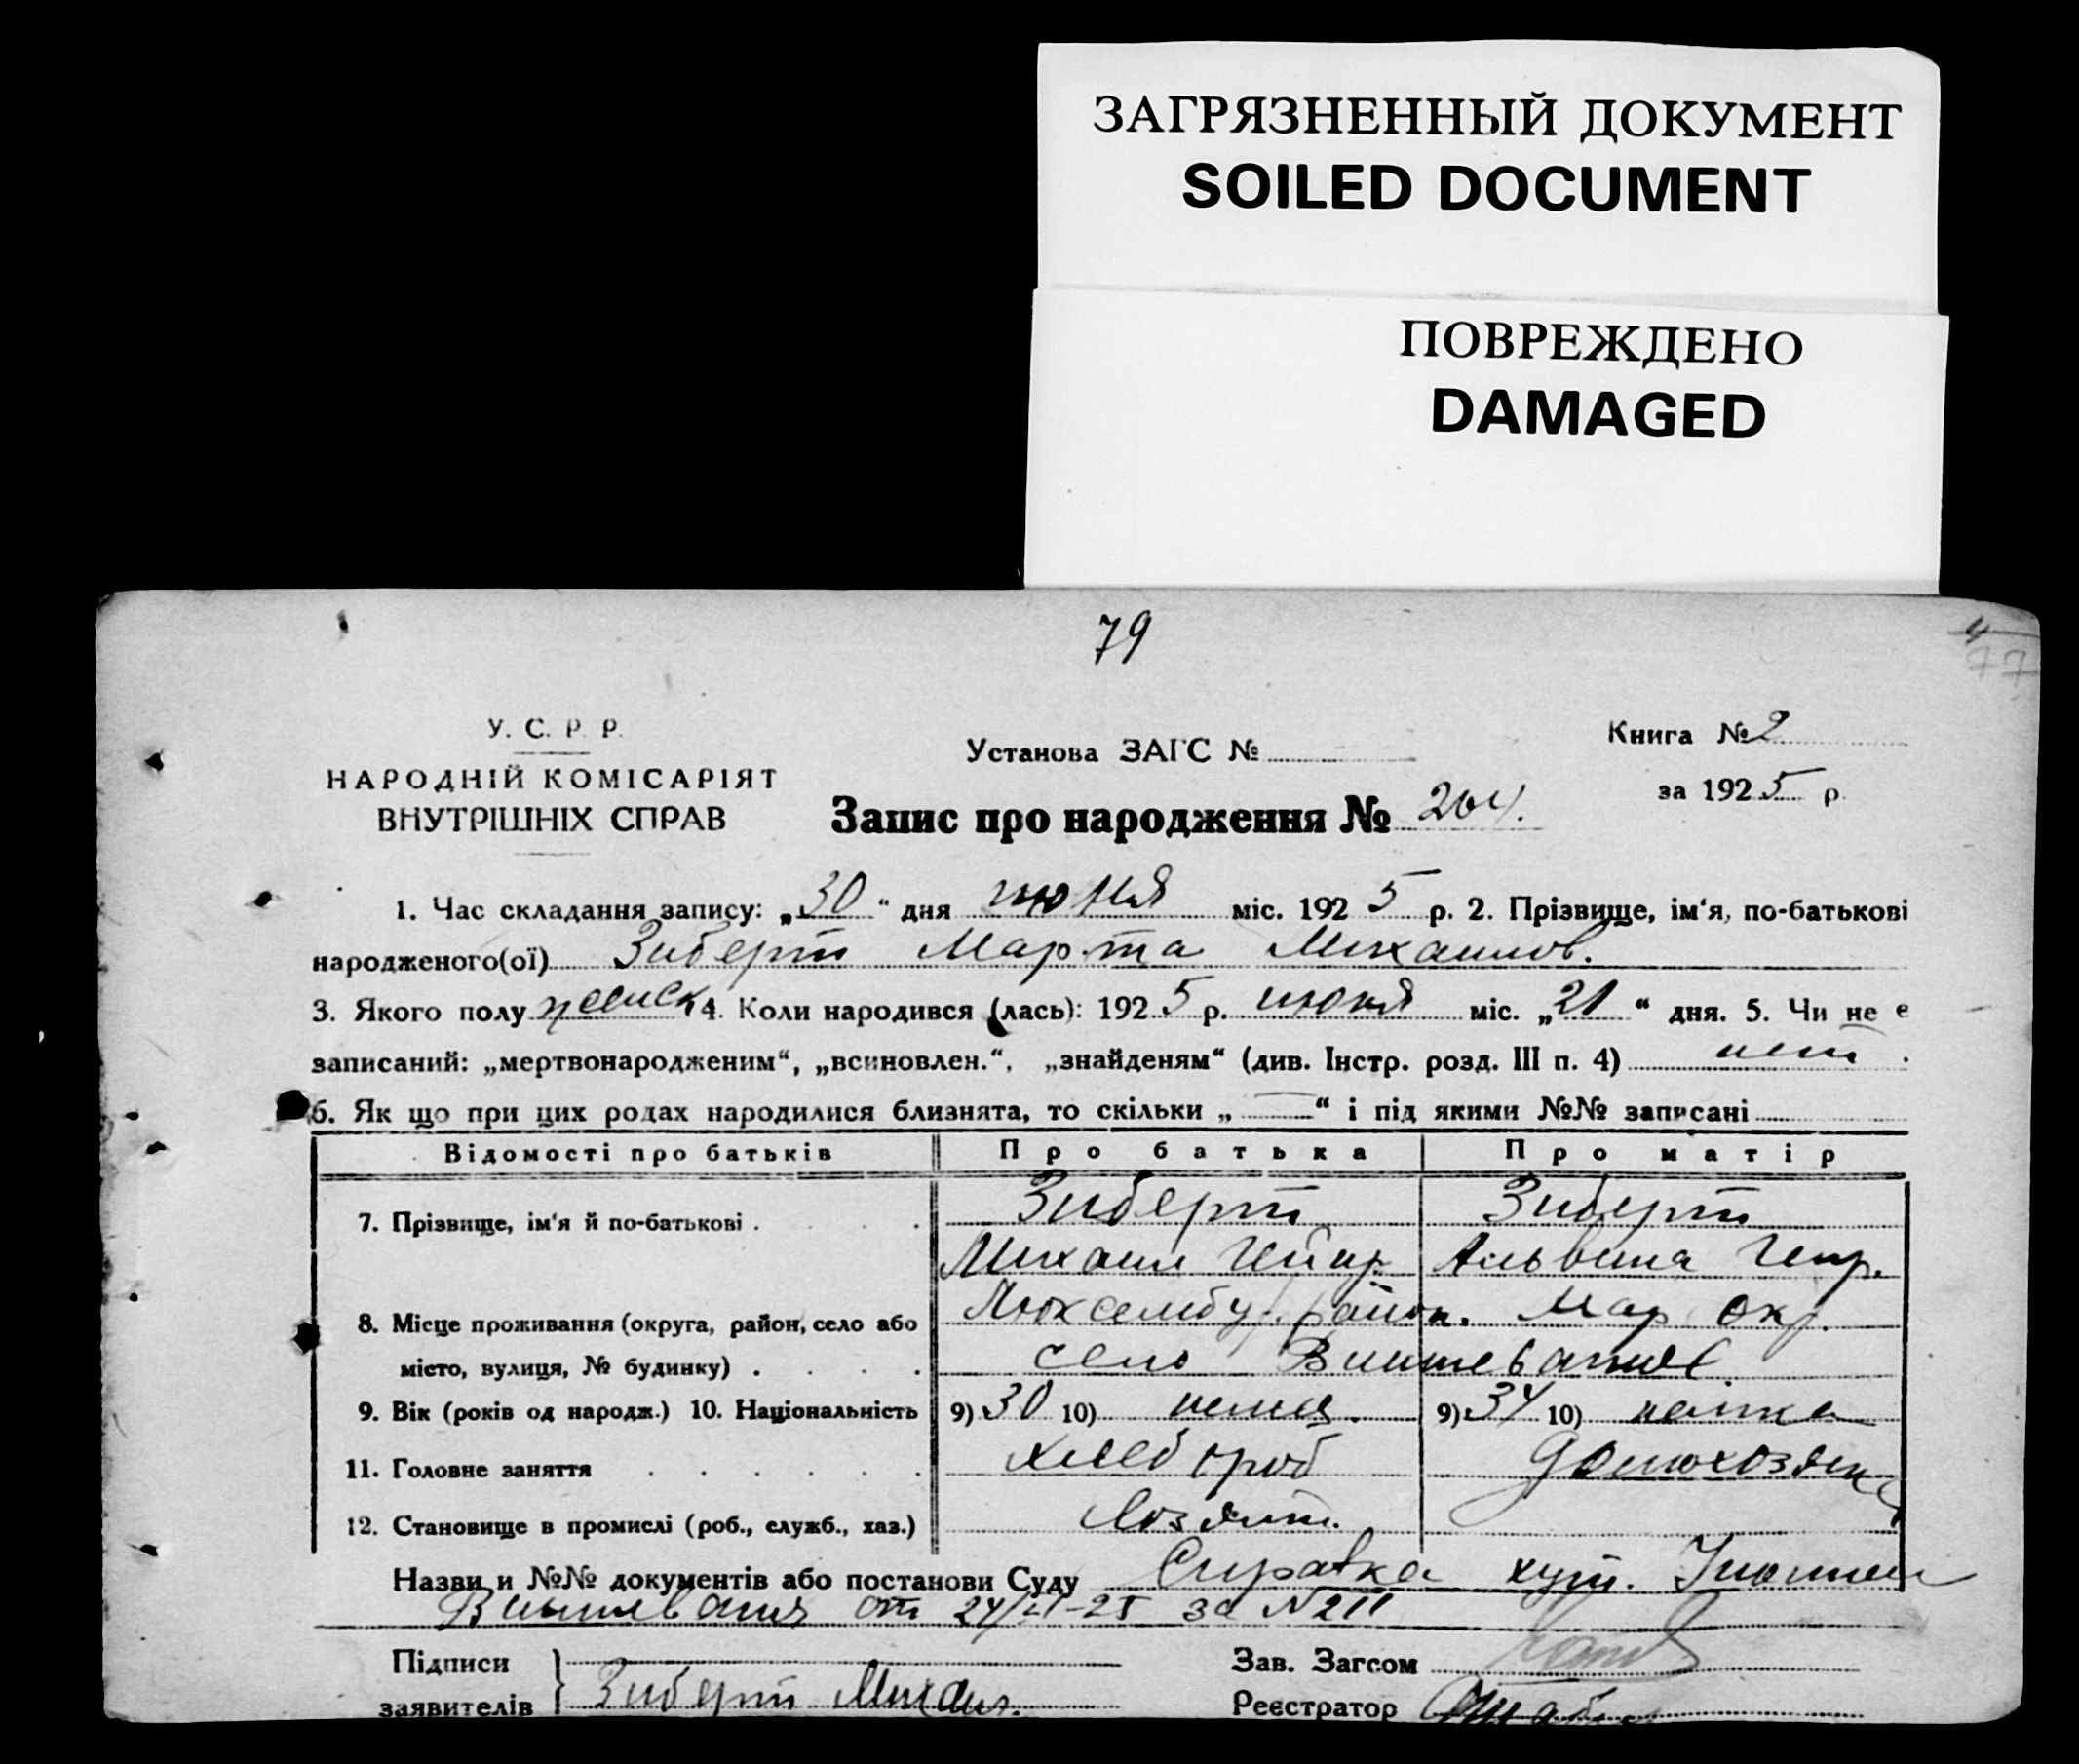 ЗАГРЯЗНЕННЫЙ ДОКУМЕНТ
SOILED DOCUMENT
ПОВРЕЖДЕНО
DAMAGED
79
77
У. С. Р. Р.
НАРОДНІЙ КОМІСАРІЯТ
ВНУТРІШНІХ СПРАВ
Установа ЗАГС №
Книга № 2
за 1925 р.
Запис про народження № 204.
1. Час складання запису: „30“ дня июня міс. 1925 р. 2. Прізвище, ім‘я, по-батькові
народженого(ої) Зиберт Марта Михаилов.
3. Якого полу женск 4. Коли народився (лась): 1925 р. июня міс. „21“ дня. 5. Чи не є
записаний: „мертвонародженим“, „всиновлен.“, „знайденям“ (див. Інстр. розд. III п. 4) нет.
6. Як що при цих родах народилися близнята, то скільки „—“ і під якими №№ записані
Відомості про батьків Про батька Про матір
7. Прізвище, ім‘я й по-батькові . Зиберт Зиберт
Михаил Альвина
8. Місце проживання (округа, район, село або Люксембу. район. Мар окр.
місто, вулиця, № будинку) . село
9. Вік (років од народж.) 10. Національність 9) 30 10) немец. 9) 34 10) немка
11. Головне заняття хлебороб домохозяйка
12. Становище в промислі (роб., служб., хаз.) хозяин.
Назви и №№ документів або постанови Суду Справка хут.
от 24/VI-25 за N 211
Підписи
заявителів Зиберт Михаил.
Зав. Загсом
Реєстратор